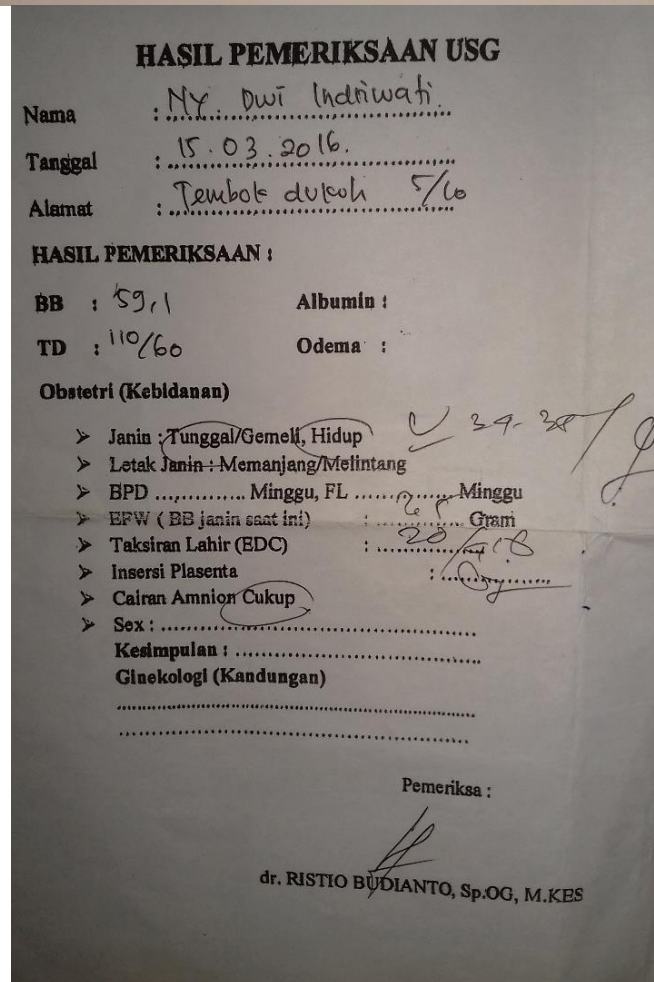 HASIL PEMERIKSAAN USG
Nama : NY. Dwi Indriwati
Tanggal : 15.03.2016.
Alamat : Tembok dukoh 5/60
HASIL PEMERIKSAAN :
BB : 59,1 Albumin :
TD : 110/60 Odema :
Obstetri (Kebidanan)
➤ Janin : Tunggal/Gemeli, Hidup
➤ Letak Janin : Memanjang/Melintang
➤ BPD .............. Minggu, FL .............. Minggu
➤ EFW ( BB janin saat ini) : .............. Gram
➤ Taksiran Lahir (EDC) : 20/
➤ Insersi Plasenta : ..............
➤ Cairan Amnion Cukup
➤ Sex : ..............
Kesimpulan : ..............
Ginekologi (Kandungan)
Pemeriksa :
dr. RISTIO BUDIANTO, Sp.OG, M.KES